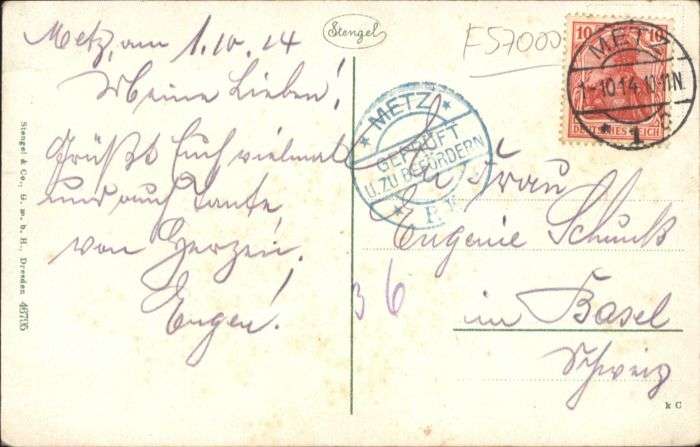 Metz, am 1.10.14
Meine Lieben!
Grüßt Euch vielmal
und auch Tante,
von Herzen.
Eugen!
Stengel
Stengel & Co., G. m. b. H., Dresden 46705
F57000
10 10
DEUTSCHES REICH
METZ
1-10.14.10-11N.
* 1
METZ
GEPRÜFT
U.ZU BEFÖRDERN
Frau
Eugenie Schunk
in Basel
Schweiz
36
k C